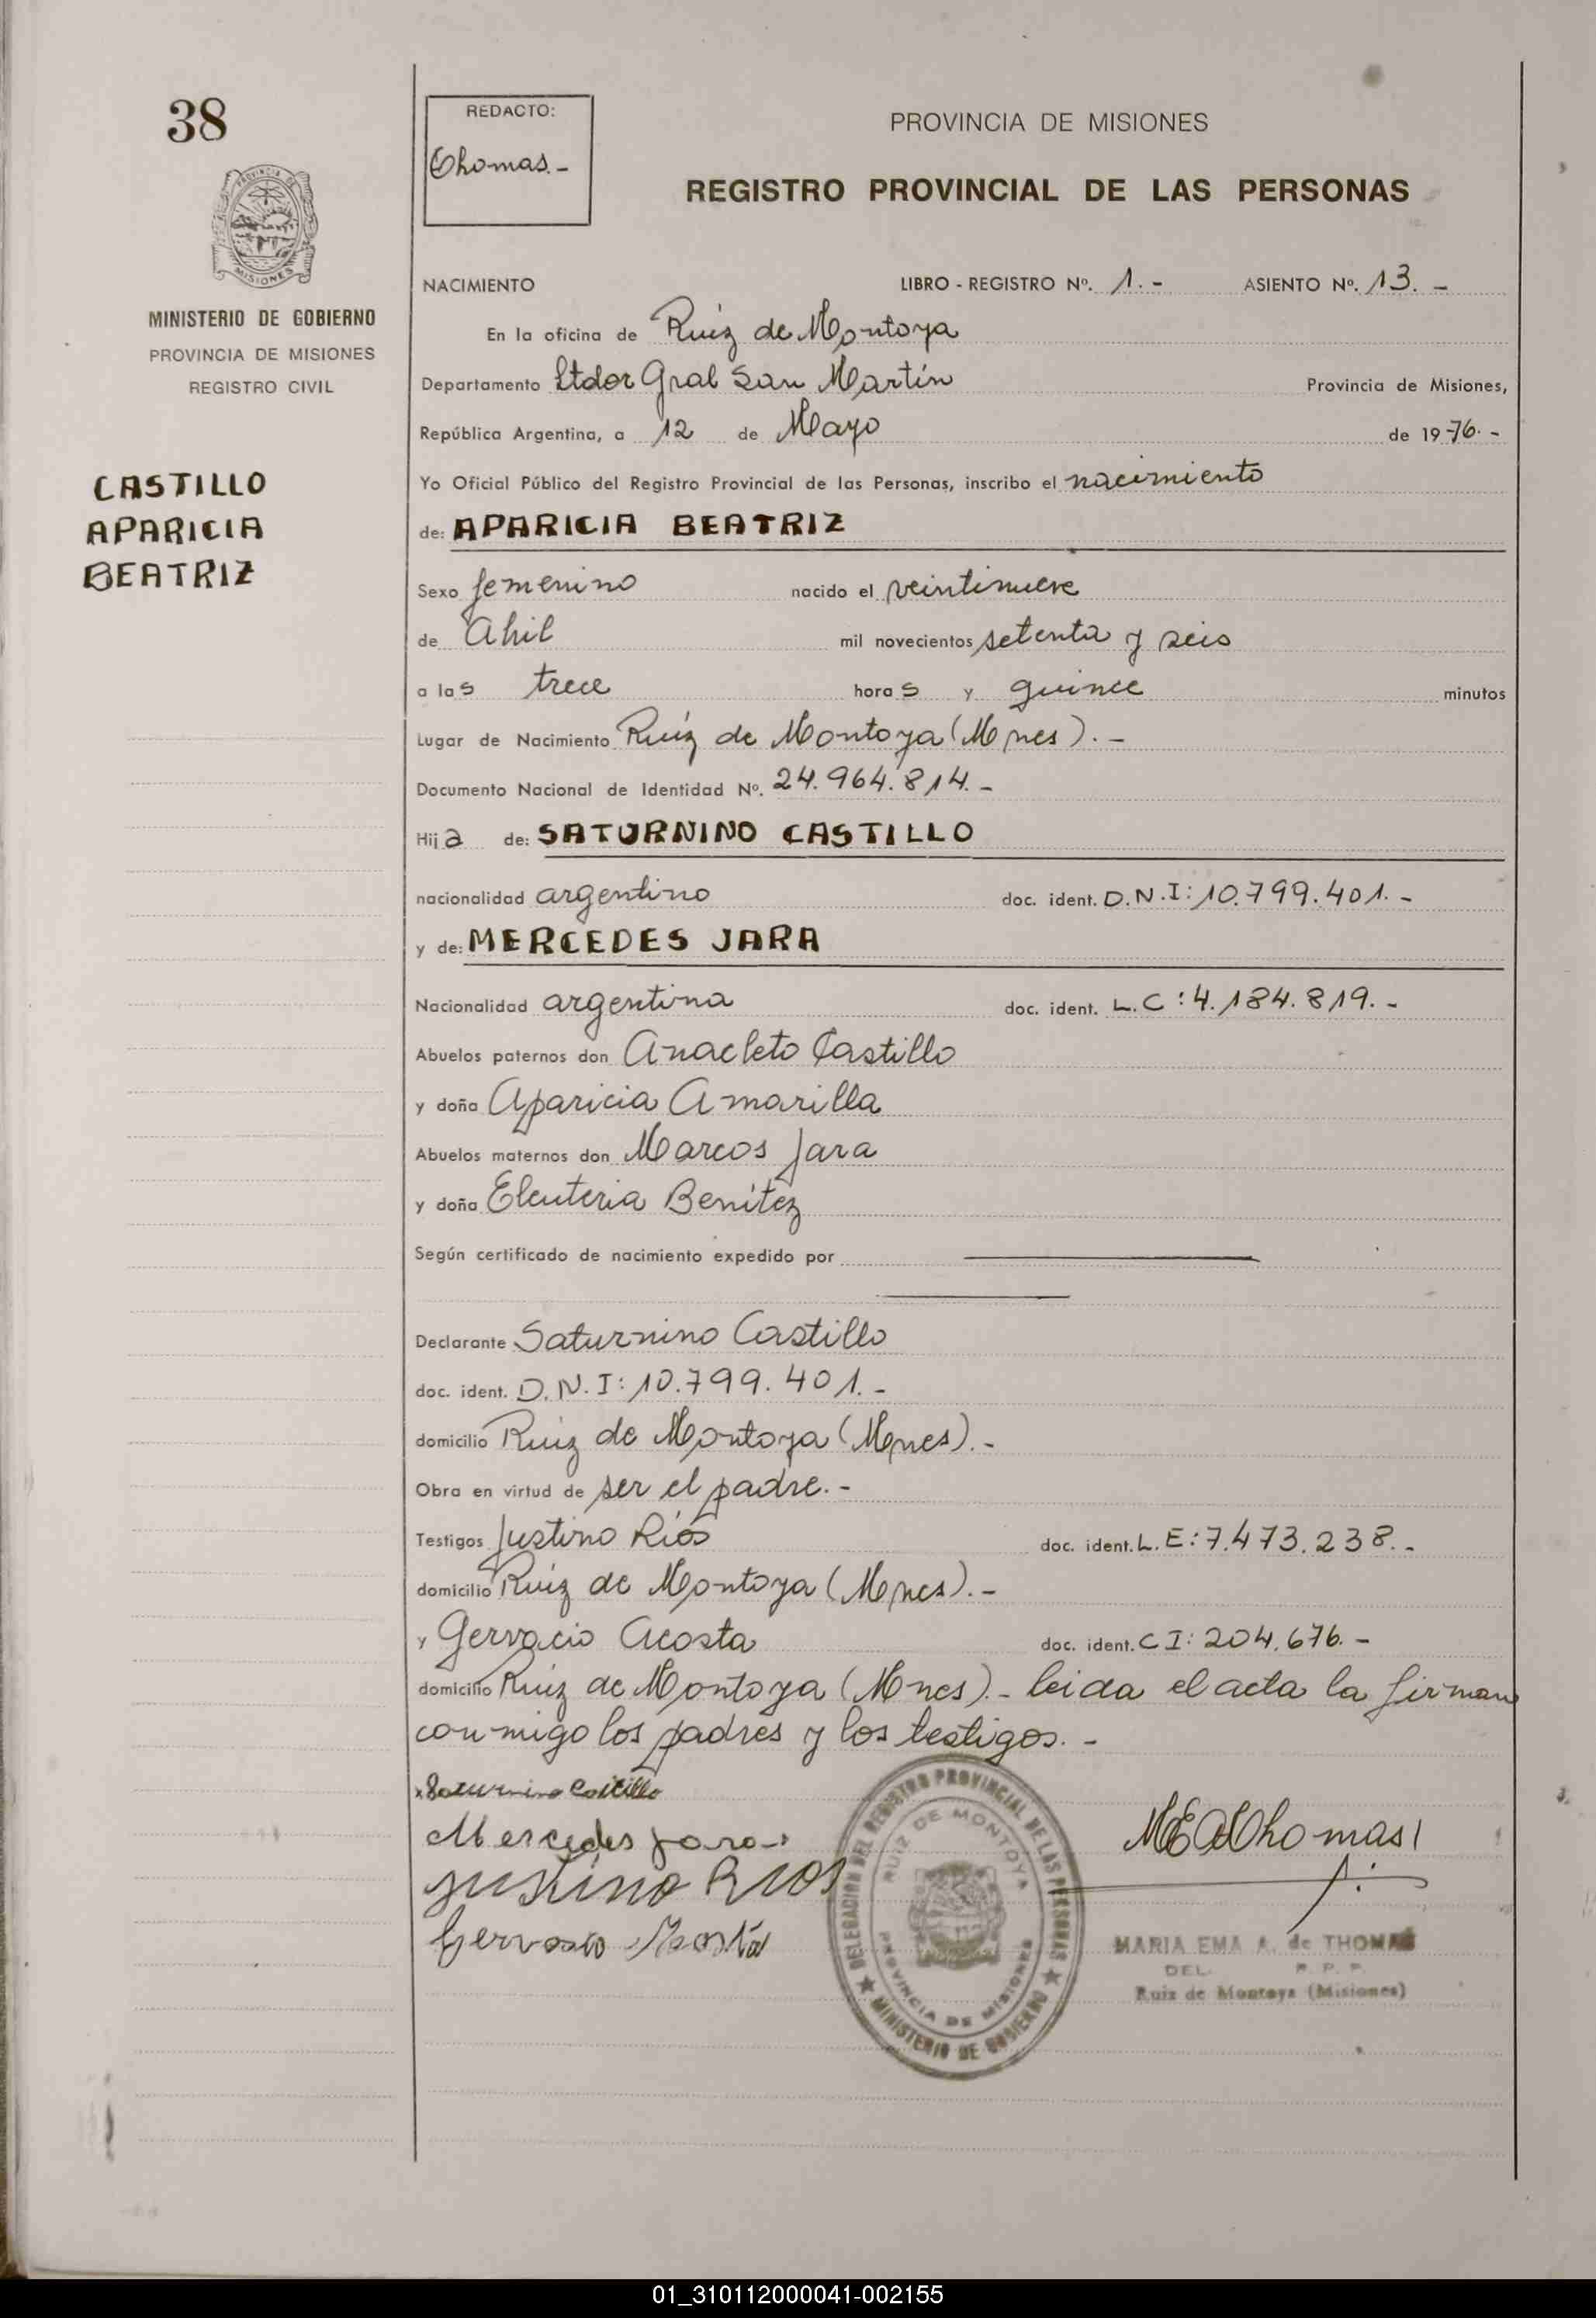 38
PROVINCIA DE
MISIONES
MINISTERIO DE GOBIERNO
PROVINCIA DE MISIONES
REGISTRO CIVIL
CASTILLO
APARICIA
BEATRIZ
REDACTO:
Thomas.-
PROVINCIA DE MISIONES
REGISTRO PROVINCIAL DE LAS PERSONAS
NACIMIENTO LIBRO - REGISTRO Nº. 1.- ASIENTO Nº. 13.-
En la oficina de Ruiz de Montoya
Departamento Ltdor Gral San Martín Provincia de Misiones,
República Argentina, a 12 de Mayo de 1976.-
Yo Oficial Público del Registro Provincial de las Personas, inscribo el nacimiento
de: APARICIA BEATRIZ
Sexo femenino nacido el veintinueve
de Abril mil novecientos setenta y seis
a las trece horas y quince minutos
Lugar de Nacimiento Ruíz de Montoya (Mnes).-
Documento Nacional de Identidad Nº. 24.964.814.-
Hija de: SATURNINO CASTILLO
nacionalidad argentino doc. ident. D.N.I: 10.799.401.-
y de: MERCEDES JARA
Nacionalidad argentina doc. ident. L.C: 4.184.819.-
Abuelos paternos don Anacleto Castillo
y doña Aparicia Amarilla
Abuelos maternos don Marcos Jara
y doña Eleuteria Benítez
Según certificado de nacimiento expedido por
Declarante Saturnino Castillo
doc. ident. D.N.I: 10.799.401.-
domicilio Ruiz de Montoya (Mnes).-
Obra en virtud de ser el padre.-
Testigos Justino Ríos doc. ident. L.E: 7.473.238.-
domicilio Ruiz de Montoya (Mnes).-
y Gervacio Acosta doc. ident. C I: 204.676.-
domicilio Ruiz de Montoya (Mnes).- leida el acta la firman
conmigo los padres y los testigos.-
x Saturnino Castillo
Mercedes Jara
Justino Rios
Gervasio Acosta
DELEGACION DEL REGISTRO PROVINCIAL DE LAS PERSONAS
RUIZ DE MONTOYA
PROVINCIA DE MISIONES
MINISTERIO DE GOBIERNO
MEAThomas
MARIA EMA A. de THOMAS
DEL. R. P. P.
Ruiz de Montoya (Misiones)
01_310112000041-002155